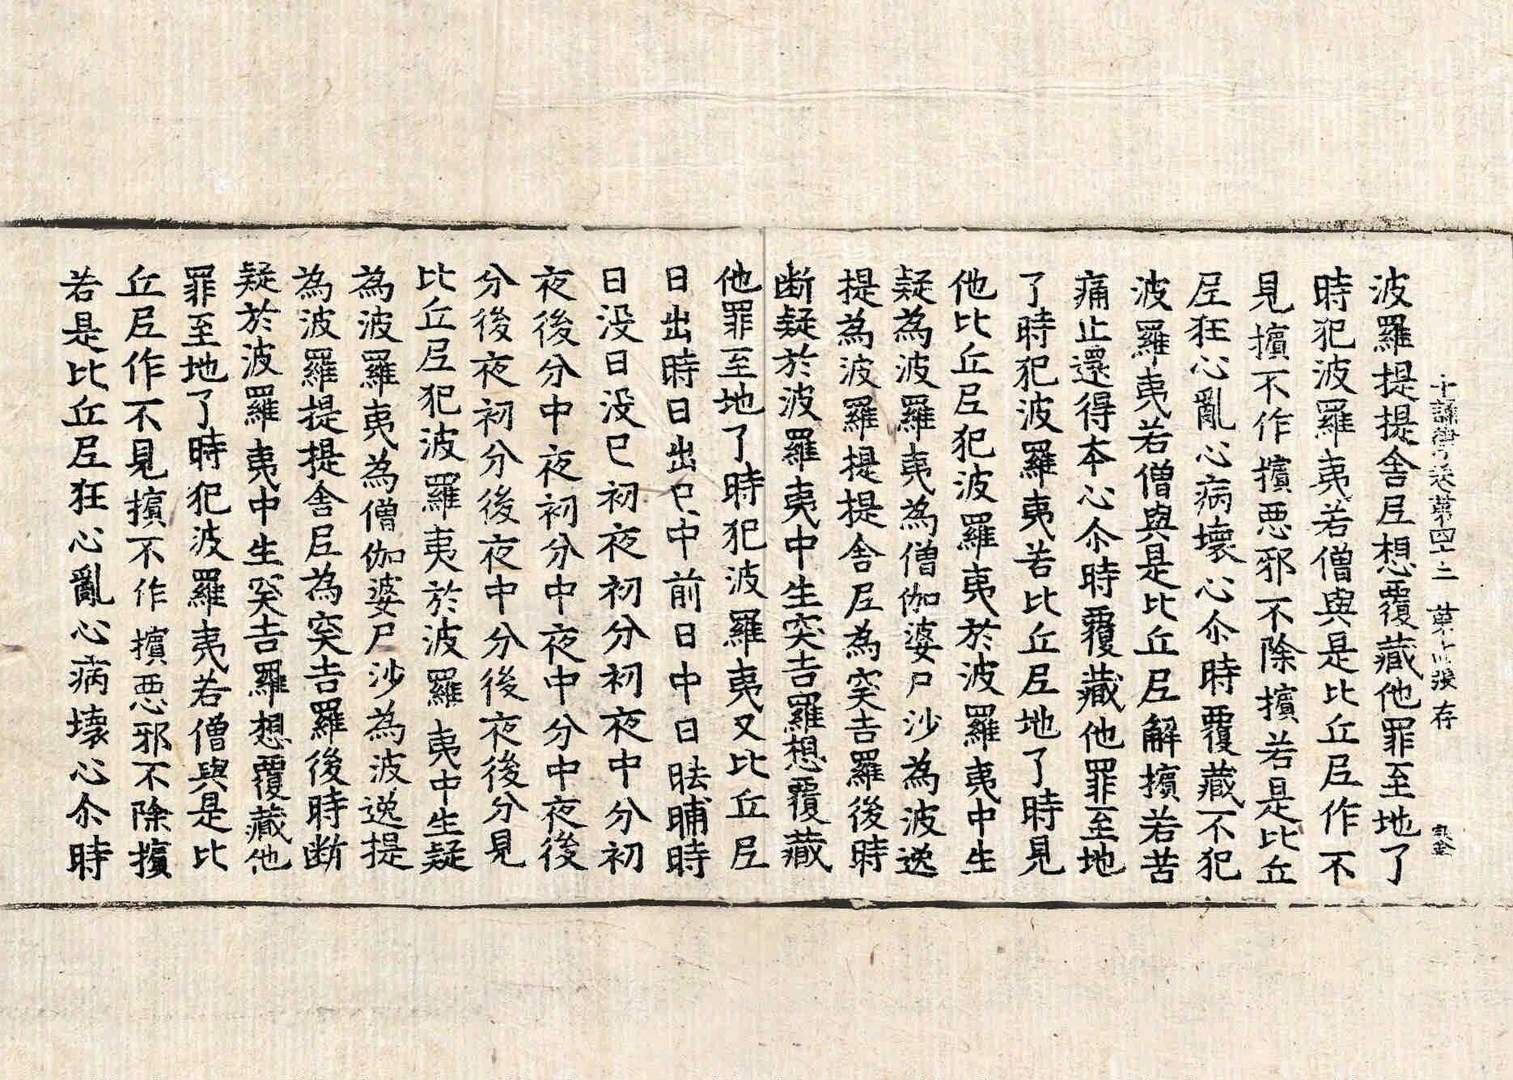 十誦律 卷第四十二 第十 張 存
波羅提提舍尼想覆藏他罪至地了
時犯波羅夷若僧與是比丘尼作不
見擯不作擯惡邪不除擯若是比丘
尼狂心亂心病壞心尒時覆藏不犯
波羅夷若僧與是比丘尼解擯若苦
痛止還得本心尒時覆藏他罪至地
了時犯波羅夷若比丘尼地了時見
他比丘尼犯波羅夷於波羅夷中生
疑為波羅夷為僧伽婆尸沙為波逸
提為波羅提提舍尼為突吉羅後時
断疑於波羅夷中生突吉羅想覆藏
他罪至地了時犯波羅夷又比丘尼
日出時日出已中前日中日昳晡時
日没日没已初夜初分初夜中分初
夜後分中夜初分中夜中分中夜後
分後夜初分後夜中分後夜後分見
比丘尼犯波羅夷於波羅夷中生疑
為波羅夷為僧伽婆尸沙為波逸提
為波羅提提舍尼為突吉羅後時断
疑於波羅夷中生突吉羅想覆藏他
罪至地了時犯波羅夷若僧與是比
丘尼作不見擯不作擯惡邪不除擯
若是比丘尼狂心亂心病壞心尒時